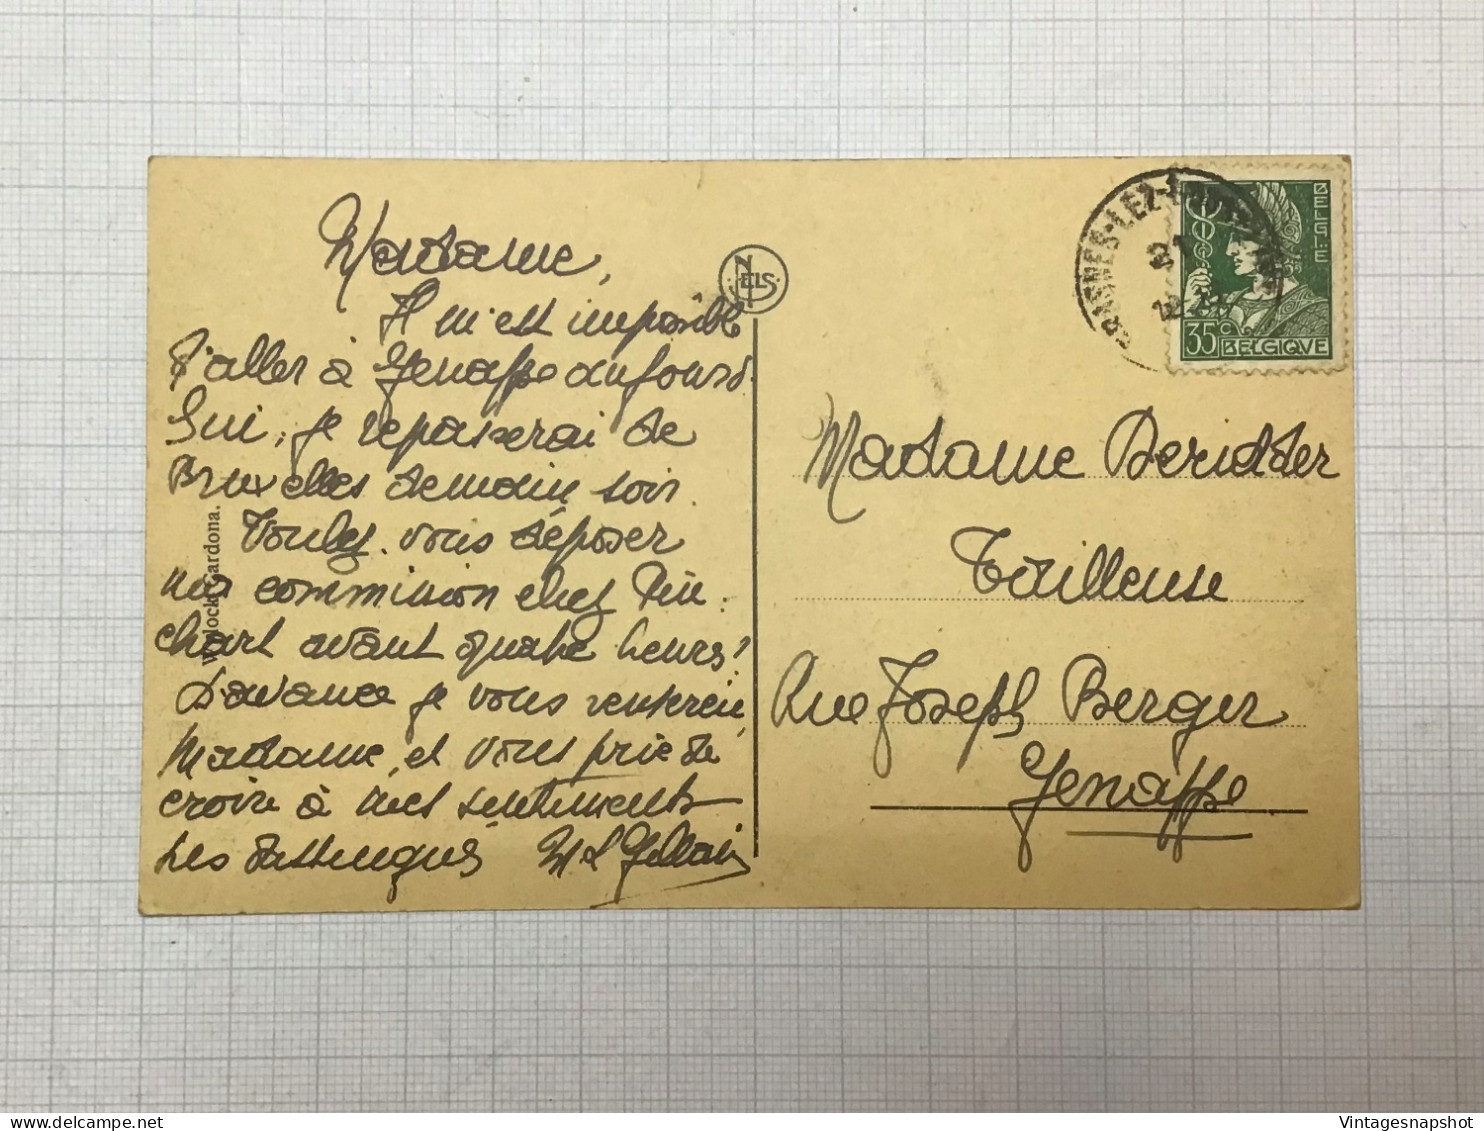 Madame,
Il m'est impossible
d'aller à Genappe aujourd.
hui, je repasserai de
Bruxelles demain soir.
Voulez-vous déposer
ma commission chez
chart avant quatre heures?
D'avance je vous remercie,
Madame, et vous prie de
croire à mes sentiments
les distingués
NELS
Cardona.
35c BELGIQVE
BELGIË
Madame Deridder
Tailleuse
Rue Joseph Berger
Genappe
Vintagesnapshot